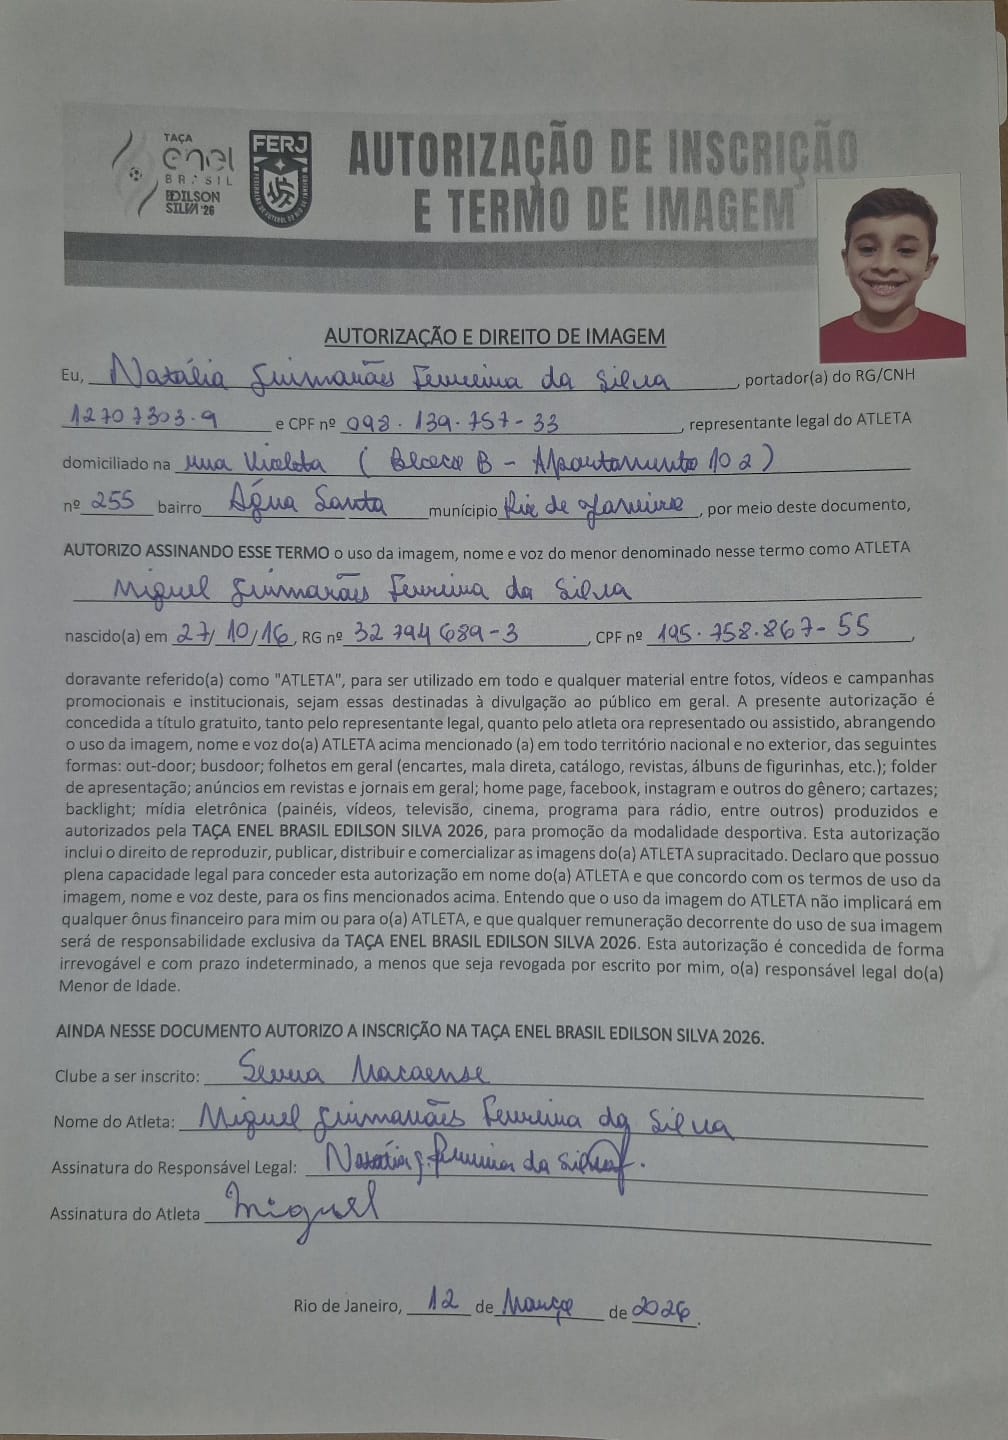 TAÇA
enel
BRASIL
EDILSON
SILVA '26
FERJ
FEDERAÇÃO DE FUTEBOL DO RIO DE JANEIRO
AUTORIZAÇÃO DE INSCRIÇÃO
E TERMO DE IMAGEM
AUTORIZAÇÃO E DIREITO DE IMAGEM
Eu, Natália Guimarães Ferreira da Silva, portador(a) do RG/CNH
12707303-9 e CPF nº 098.139.757-33, representante legal do ATLETA
domiciliado na Rua Violeta (Bloco B - Apartamento 102)
nº 255 bairro Água Santa munícipio Rio de Janeiro, por meio deste documento,
AUTORIZO ASSINANDO ESSE TERMO o uso da imagem, nome e voz do menor denominado nesse termo como ATLETA
Miguel Guimarães Ferreira da Silva
nascido(a) em 27/10/16, RG nº 32794689-3, CPF nº 195.758.867-55,
doravante referido(a) como "ATLETA", para ser utilizado em todo e qualquer material entre fotos, vídeos e campanhas
promocionais e institucionais, sejam essas destinadas à divulgação ao público em geral. A presente autorização é
concedida a título gratuito, tanto pelo representante legal, quanto pelo atleta ora representado ou assistido, abrangendo
o uso da imagem, nome e voz do(a) ATLETA acima mencionado (a) em todo território nacional e no exterior, das seguintes
formas: out-door; busdoor; folhetos em geral (encartes, mala direta, catálogo, revistas, álbuns de figurinhas, etc.); folder
de apresentação; anúncios em revistas e jornais em geral; home page, facebook, instagram e outros do gênero; cartazes;
backlight; mídia eletrônica (painéis, vídeos, televisão, cinema, programa para rádio, entre outros) produzidos e
autorizados pela TAÇA ENEL BRASIL EDILSON SILVA 2026, para promoção da modalidade desportiva. Esta autorização
inclui o direito de reproduzir, publicar, distribuir e comercializar as imagens do(a) ATLETA supracitado. Declaro que possuo
plena capacidade legal para conceder esta autorização em nome do(a) ATLETA e que concordo com os termos de uso da
imagem, nome e voz deste, para os fins mencionados acima. Entendo que o uso da imagem do ATLETA não implicará em
qualquer ônus financeiro para mim ou para o(a) ATLETA, e que qualquer remuneração decorrente do uso de sua imagem
será de responsabilidade exclusiva da TAÇA ENEL BRASIL EDILSON SILVA 2026. Esta autorização é concedida de forma
irrevogável e com prazo indeterminado, a menos que seja revogada por escrito por mim, o(a) responsável legal do(a)
Menor de Idade.
AINDA NESSE DOCUMENTO AUTORIZO A INSCRIÇÃO NA TAÇA ENEL BRASIL EDILSON SILVA 2026.
Clube a ser inscrito: Serra Macaense
Nome do Atleta: Miguel Guimarães Ferreira da Silva
Assinatura do Responsável Legal: Natália G. Ferreira da Silva
Assinatura do Atleta Miguel
Rio de Janeiro, 12 de Março de 2026.